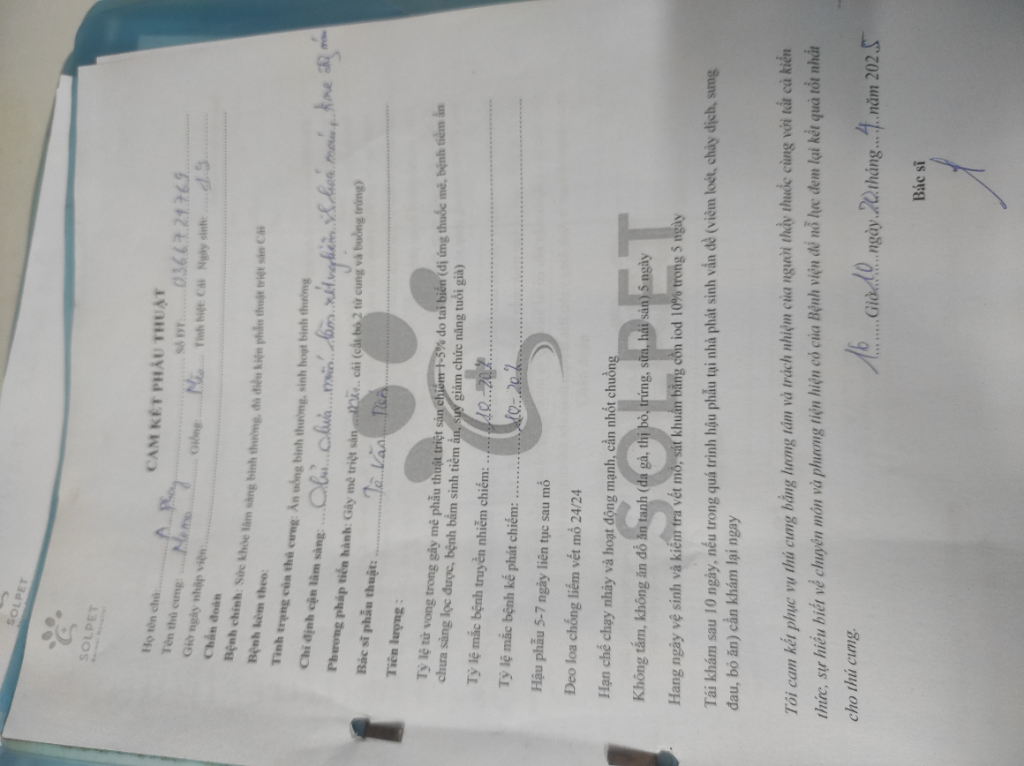 SOLPET
SOLPET
CAM KẾT PHẪU THUẬT
Họ tên chủ: A Số ĐT: 03667.21769
Tên thú cưng: Giống: Mèo Tính biệt: Cái Ngày sinh:
Giờ ngày nhập viện:
Chẩn đoán
Bệnh chính: Sức khỏe lâm sàng bình thường, đủ điều kiện phẫu thuật triệt sản Cái
Bệnh kèm theo:
Tình trạng của thú cưng: Ăn uống bình thường, sinh hoạt bình thường
Chỉ định cận lâm sàng: Chủ muốn làm xét nghiệm máu,
Phương pháp tiến hành: Gây mê triệt sản mèo cái (cắt bỏ 2 tử cung và buồng trứng)
Bác sĩ phẫu thuật: Tô Văn
Tiên lượng :
Tỷ lệ tử vong trong gây mê phẫu thuật triệt sản chiếm 1-5% do tai biến (dị ứng thuốc mê, bệnh tiềm ẩn
chưa sàng lọc được, bệnh bẩm sinh tiềm ẩn, suy giảm chức năng tuổi già)
Tỷ lệ mắc bệnh truyền nhiễm chiếm: 10-20%
Tỷ lệ mắc bệnh kế phát chiếm: 10-20%
Hậu phẫu 5-7 ngày liên tục sau mổ
Đeo loa chống liếm vết mổ 24/24
Hạn chế chạy nhảy và hoạt động mạnh, cần nhốt chuồng
Không tắm, không ăn đồ ăn tanh (da gà, thị bò, trứng, sữa, hải sản) 5 ngày
Hang ngày vệ sinh và kiểm tra vết mổ, sát khuẩn bằng cồn iod 10% trong 5 ngày
Tái khám sau 10 ngày, nếu trong quá trình hậu phẫu tại nhà phát sinh vấn đề (viêm loét, chảy dịch, sưng
đau, bỏ ăn) cần khám lại ngay
SOLPET
Tôi cam kết phục vụ thú cưng bằng lương tâm và trách nhiệm của người thầy thuốc cùng với tất cả kiến
thức, sự hiểu biết về chuyên môn và phương tiện hiện có của Bệnh viện để nỗ lực đem lại kết quả tốt nhất
cho thú cưng.
16 Giờ 10 ngày 20 tháng 4 năm 2025
Bác sĩ